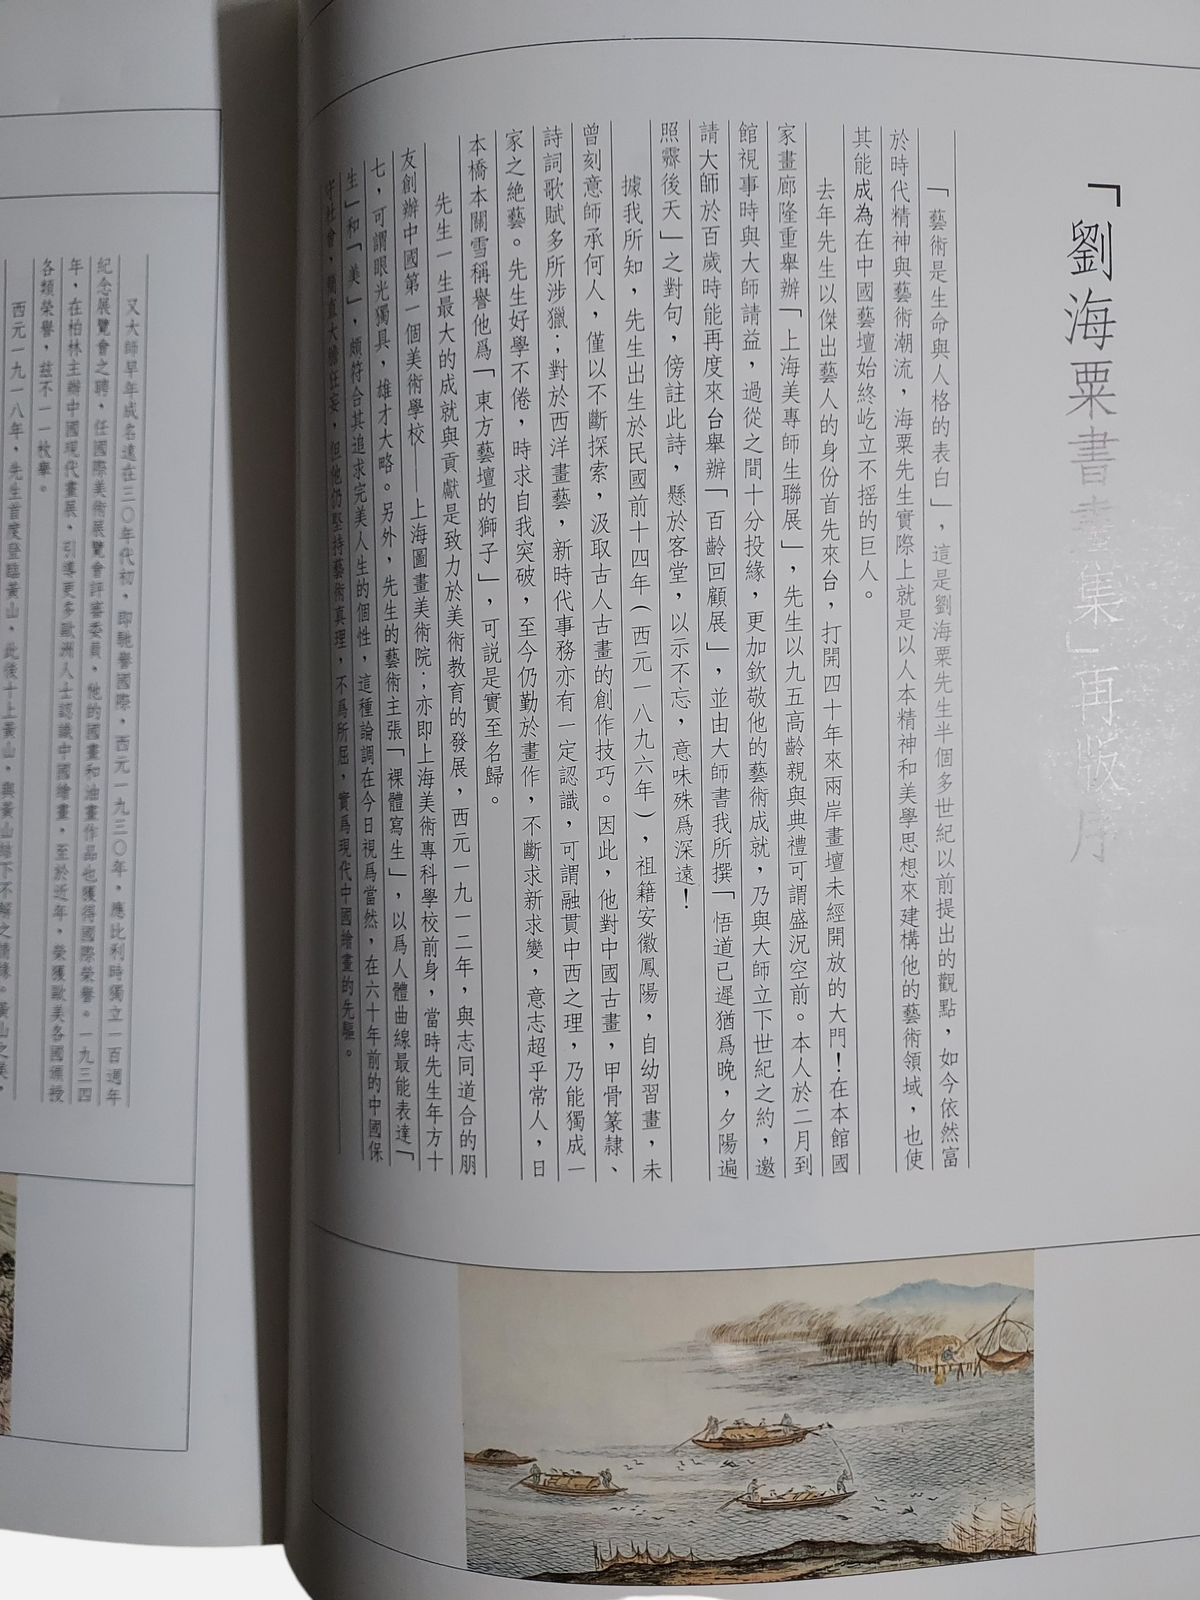 「劉海粟書畫集」再版序
「藝術是生命與人格的表白」，這是劉海粟先生半個多世紀以前提出的觀點，如今依然富
於時代精神與藝術潮流，海粟先生實際上就是以人本精神和美學思想來建構他的藝術領域，也使
其能成為在中國藝壇始終屹立不搖的巨人。
去年先生以傑出藝人的身份首先來台，打開四十年來兩岸畫壇未經開放的大門！在本館國
家畫廊隆重舉辦「上海美專師生聯展」，先生以九五高齡親與典禮可謂盛況空前。本人於二月到
館視事時與大師請益，過從之間十分投緣，更加欽敬他的藝術成就，乃與大師立下世紀之約，邀
請大師於百歲時能再度來台舉辦「百齡回顧展」，並由大師書我所撰「悟道已遲猶爲晚，夕陽遍
照霽後天」之對句，傍註此詩，懸於客堂，以示不忘，意味殊爲深遠！
據我所知，先生出生於民國前十四年（西元一八九六年），祖籍安徽鳳陽，自幼習畫，未
曾刻意師承何人，僅以不斷探索，汲取古人古畫的創作技巧。因此，他對中國古畫，甲骨篆隸、
詩詞歌賦多所涉獵；對於西洋畫藝，新時代事務亦有一定認識，可謂融貫中西之理，乃能獨成一
家之絶藝。先生好學不倦，時求自我突破，至今仍勤於畫作，不斷求新求變，意志超乎常人，日
本橋本關雪稱譽他爲「東方藝壇的獅子」，可説是實至名歸。
先生一生最大的成就與貢獻是致力於美術教育的發展，西元一九一二年，與志同道合的朋
友創辦中國第一個美術學校——上海圖畫美術院；亦即上海美術專科學校前身，當時先生年方十
七，可謂眼光獨具，雄才大略。另外，先生的藝術主張「裸體寫生」，以爲人體曲線最能表達「
生」和「美」，頗符合其追求完美人生的個性，這種論調在今日視爲當然，在六十年前的中國保
守社會，簡直大謬狂妄，但他仍堅持藝術真理，不爲所屈，實爲現代中國繪畫的先驅。
又大師早年成名遠在三〇年代初，即馳譽國際，西元一九三〇年，應比利時獨立一百週年
紀念展覽會之聘，任國際美術展覽會評審委員，他的國畫和油畫作品也獲得國際榮譽。一九三四
年，在柏林主辦中國現代畫展，引導更多歐洲人士認識中國繪畫，至於近年，榮獲歐美各國頒授
各類榮譽，茲不一一枚舉。
西元一九一八年，先生首度登臨黃山，此後十上黃山，與黃山結下不解之情緣。黃山之美，